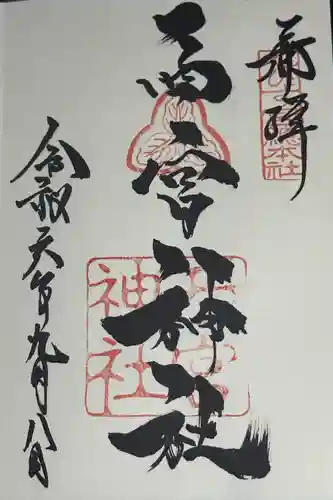 奉拝
本社
西宮神社
西宮
神社
令和元年九月八日